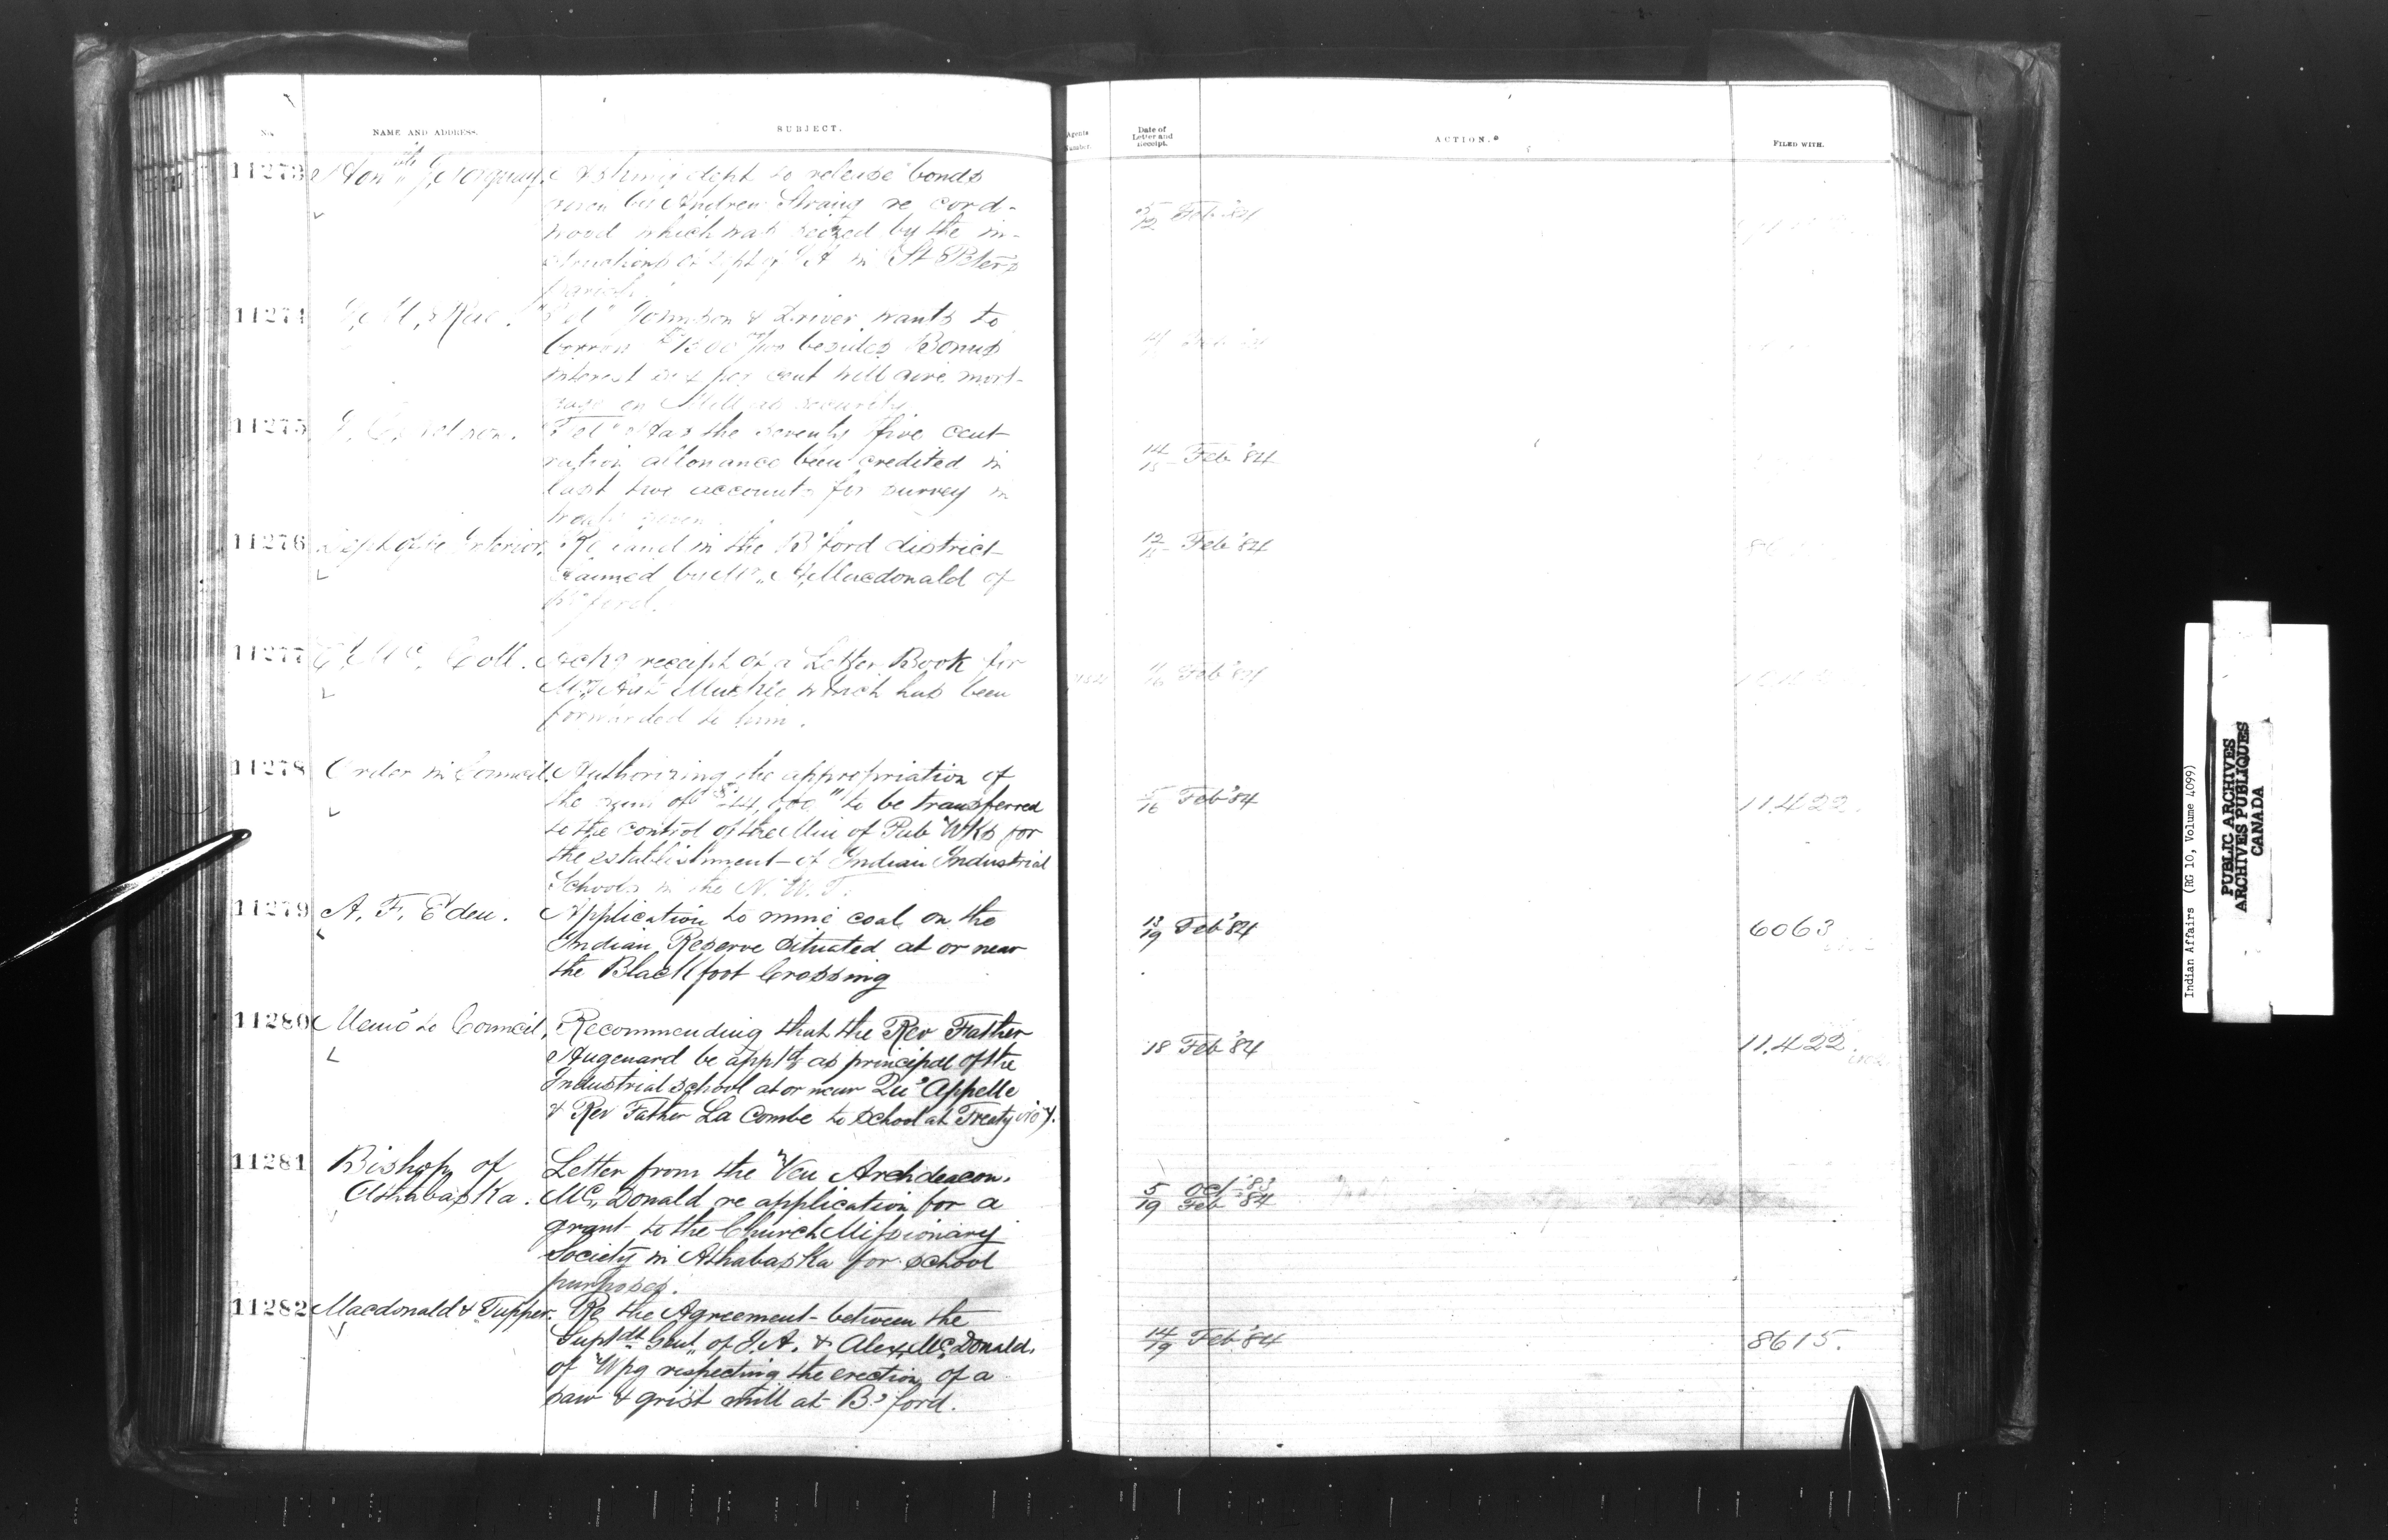 No. NAME AND ADDRESS. SUBJECT. Agents Number. Date of Letter and Receipt. ACTION. FILED WITH.
11273 Honble J. Norquay. Asking dept to release bonds
given by Andrew Strang re cord-
wood which was seized by the in-
structions of dept of I.A. in St Peters
parish.
5/12 Feb '84
11274 "Tel" Johnson & Driver wants to
borrow besides Bonus
interest per cent will give mort-
gage on Mill as security.
11275 "Tel" Has the seventy five cent
ration allowance been credited in
last two accounts for survey in
14/15 Feb '84
11276 Dept of the Interior. Re land in the B'ford district
claimed by Mr. A. Macdonald of
B'ford.
12/15 Feb '84
11277 E. Mc. Coll. Ackg receipt of a Letter Book for
which has been
forwarded to him.
16 Feb '84
11278 Order in Council. Authorizing the appropriation of
the sum of $44,000 " to be transferred
to the control of the Min of Pub Wks for
the establishment of Indian Industrial
Schools in the N.W.T.
5/16 Feb '84 11.422.
11279 A. F. Eden. Application to mine coal on the
Indian Reserve situated at or near
the Blackfoot Crossing
13/19 Feb '84 6063
11280 Memo to Council, Recommending that the Rev Father
Hugonard be apptd as principal of the
Industrial school at or near Qu'Appelle
& Rev Father La Combe to school at Treaty No 7.
18 Feb '84 11.422.
11281 Bishop of Athabaska. Letter from the Ven Archdeacon.
Mc. Donald re application for a
grant to the Church Missionary
Society in Athabaska for school
purposes.
5 Oct '83
19 Feb '84
11282 Macdonald & Tupper. Re the Agreement between the
Supt dt Genl. of I.A. & Alex Mc. Donald.
of Wpg respecting the erection of a
saw & grist mill at B'ford.
14/19 Feb '84 8615.
Indian Affairs (RG 10, Volume 4099)
PUBLIC ARCHIVES
ARCHIVES PUBLIQUES
CANADA